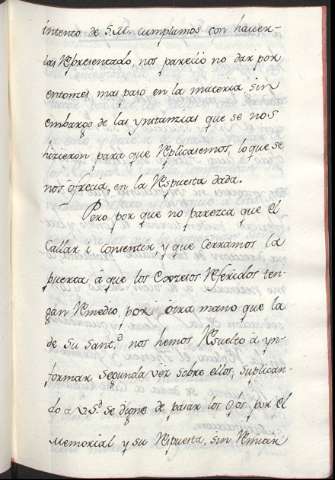 intento de S.M. cumpliamos con haver-
las Representado, nos pareció no dar por
entonces mas paso en la materia sin
embargo de las ynstanzias que se nos
hizieron para que Replicasemos, lo que se
nos ofrecia, en la Respuesta dada.
Pero por que no parezca que el
Callar è Consentir, y que Cerramos la
puerta à que los Excesos Referidos ten-
gan Remedio por otra mano que la
de Su Sant.d nos hemos Resuelto à yn-
formar segunda vez sobre ellos, suplican-
do à VS.d se digne de pasar los Ojos por el
Memorial y su Respuesta, sin